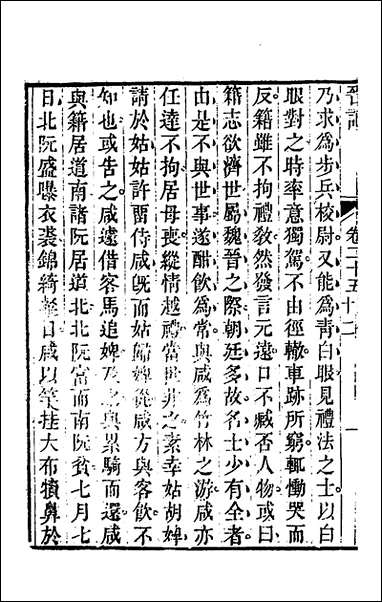 晉記 卷二十五 十二
乃求爲步兵校尉又能爲青白眼見禮法之士以白
眼對之時率意獨駕不由徑轍車跡所窮輒慟哭而
反籍雖不拘禮敎然發言元遠口不臧否人物或曰
籍志欲濟世屬魏晉之際朝廷多故名士少有全者
由是不與世事遂酣飲爲常與咸爲竹林之游咸亦
任達不拘居母喪縱情越禮當世非之素幸姑胡婢
請於姑姑許畱侍咸旣而姑歸婢從咸方與客飲不
知也或告之咸遽借客馬追婢及之與累騎而還咸
與籍居道南諸阮居道北北阮富而南阮貧七月七
日北阮盛曝衣裘錦綺粲日咸以竿挂大布犢鼻於